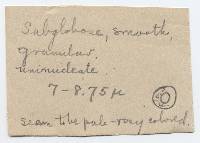 Subglobose, smooth,
granular,
uninucleate
7-8.75 µ
seem to be pale-rosy colored.